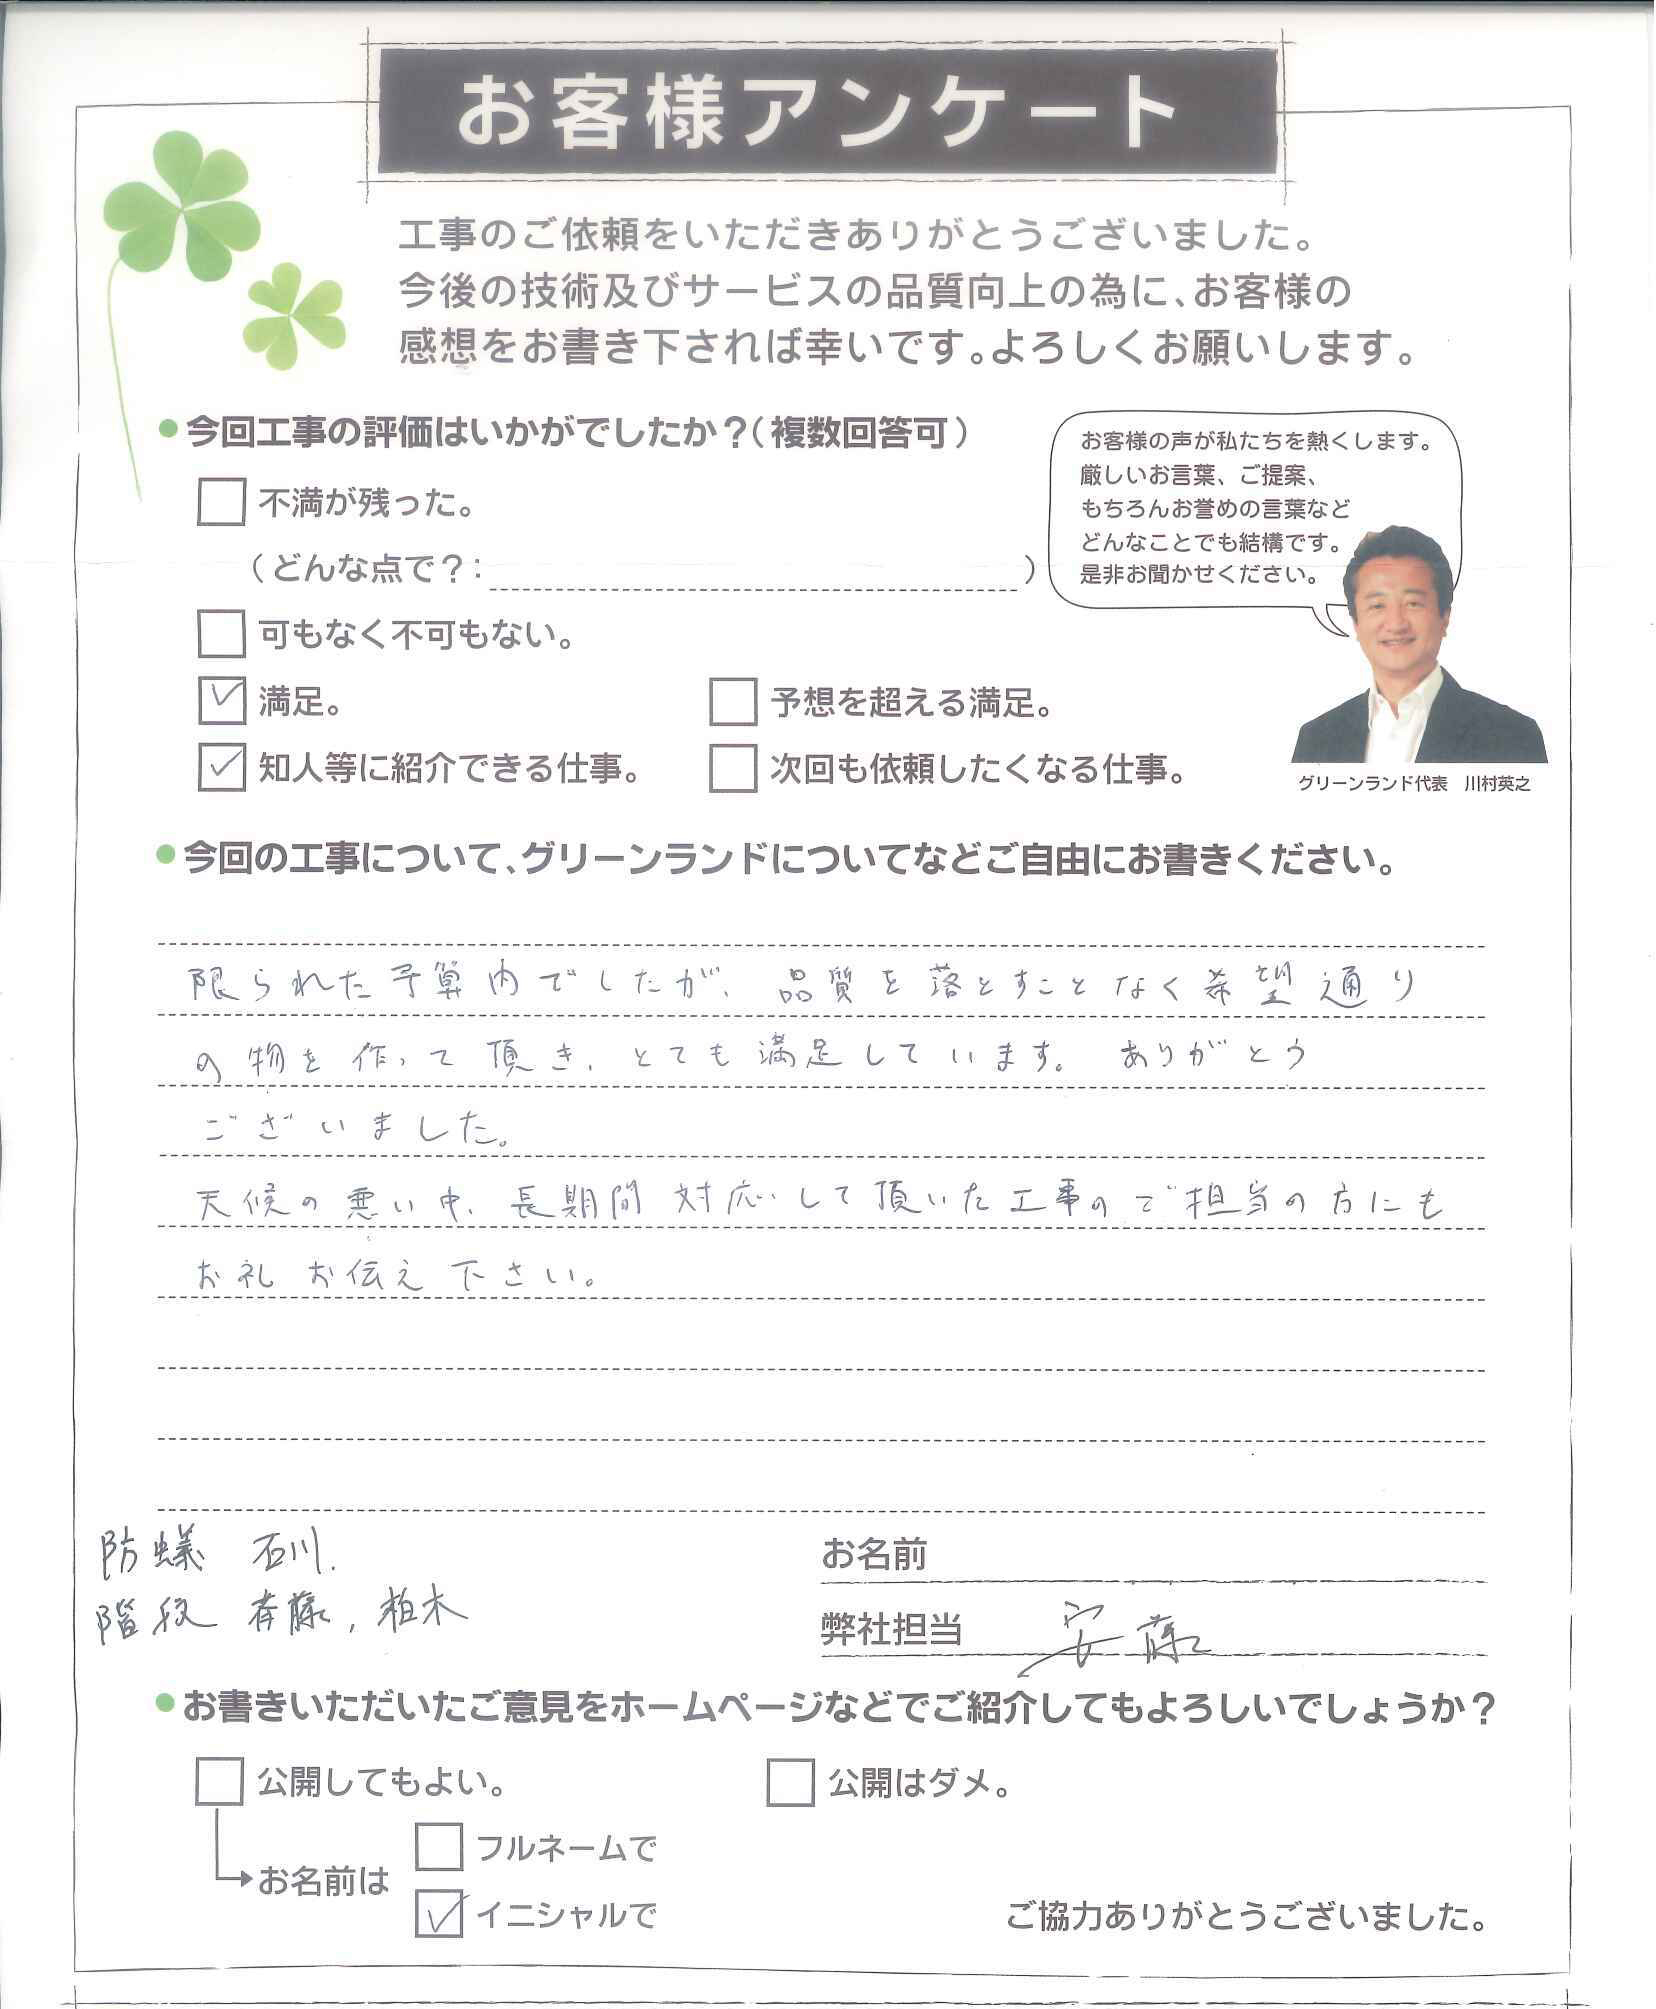 お客様アンケート
工事のご依頼をいただきありがとうございました。
今後の技術及びサービスの品質向上の為に、お客様の
感想をお書き下されば幸いです。よろしくお願いします。
●今回工事の評価はいかがでしたか？（複数回答可）
不満が残った。
（どんな点で？：　）
可もなく不可もない。
満足。
予想を超える満足。
知人等に紹介できる仕事。
次回も依頼したくなる仕事。
お客様の声が私たちを熱くします。
厳しいお言葉、ご提案、
もちろんお誉めの言葉など
どんなことでも結構です。
是非お聞かせください。
グリーンランド代表　川村英之
●今回の工事について、グリーンランドについてなどご自由にお書きください。
限られた予算内でしたが、品質を落とすことなく希望通り
の物を作って頂き、とても満足しています。ありがとう
ございました。
天候の悪い中、長期間対応して頂いた工事ので担当の方にも
お礼お伝え下さい。
防蟻　石川.
階段　斉藤, 柏木
お名前
弊社担当　安藤
●お書きいただいたご意見をホームページなどでご紹介してもよろしいでしょうか？
公開してもよい。
公開はダメ。
お名前は
フルネームで
イニシャルで
ご協力ありがとうございました。